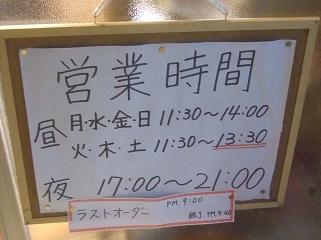 営業時間
昼 月・水・金・日 11:30～14:00
火・木・土 11:30～13:30
夜 17:00～21:00
ラストオーダー PM.9:00
終了 PM.9:40